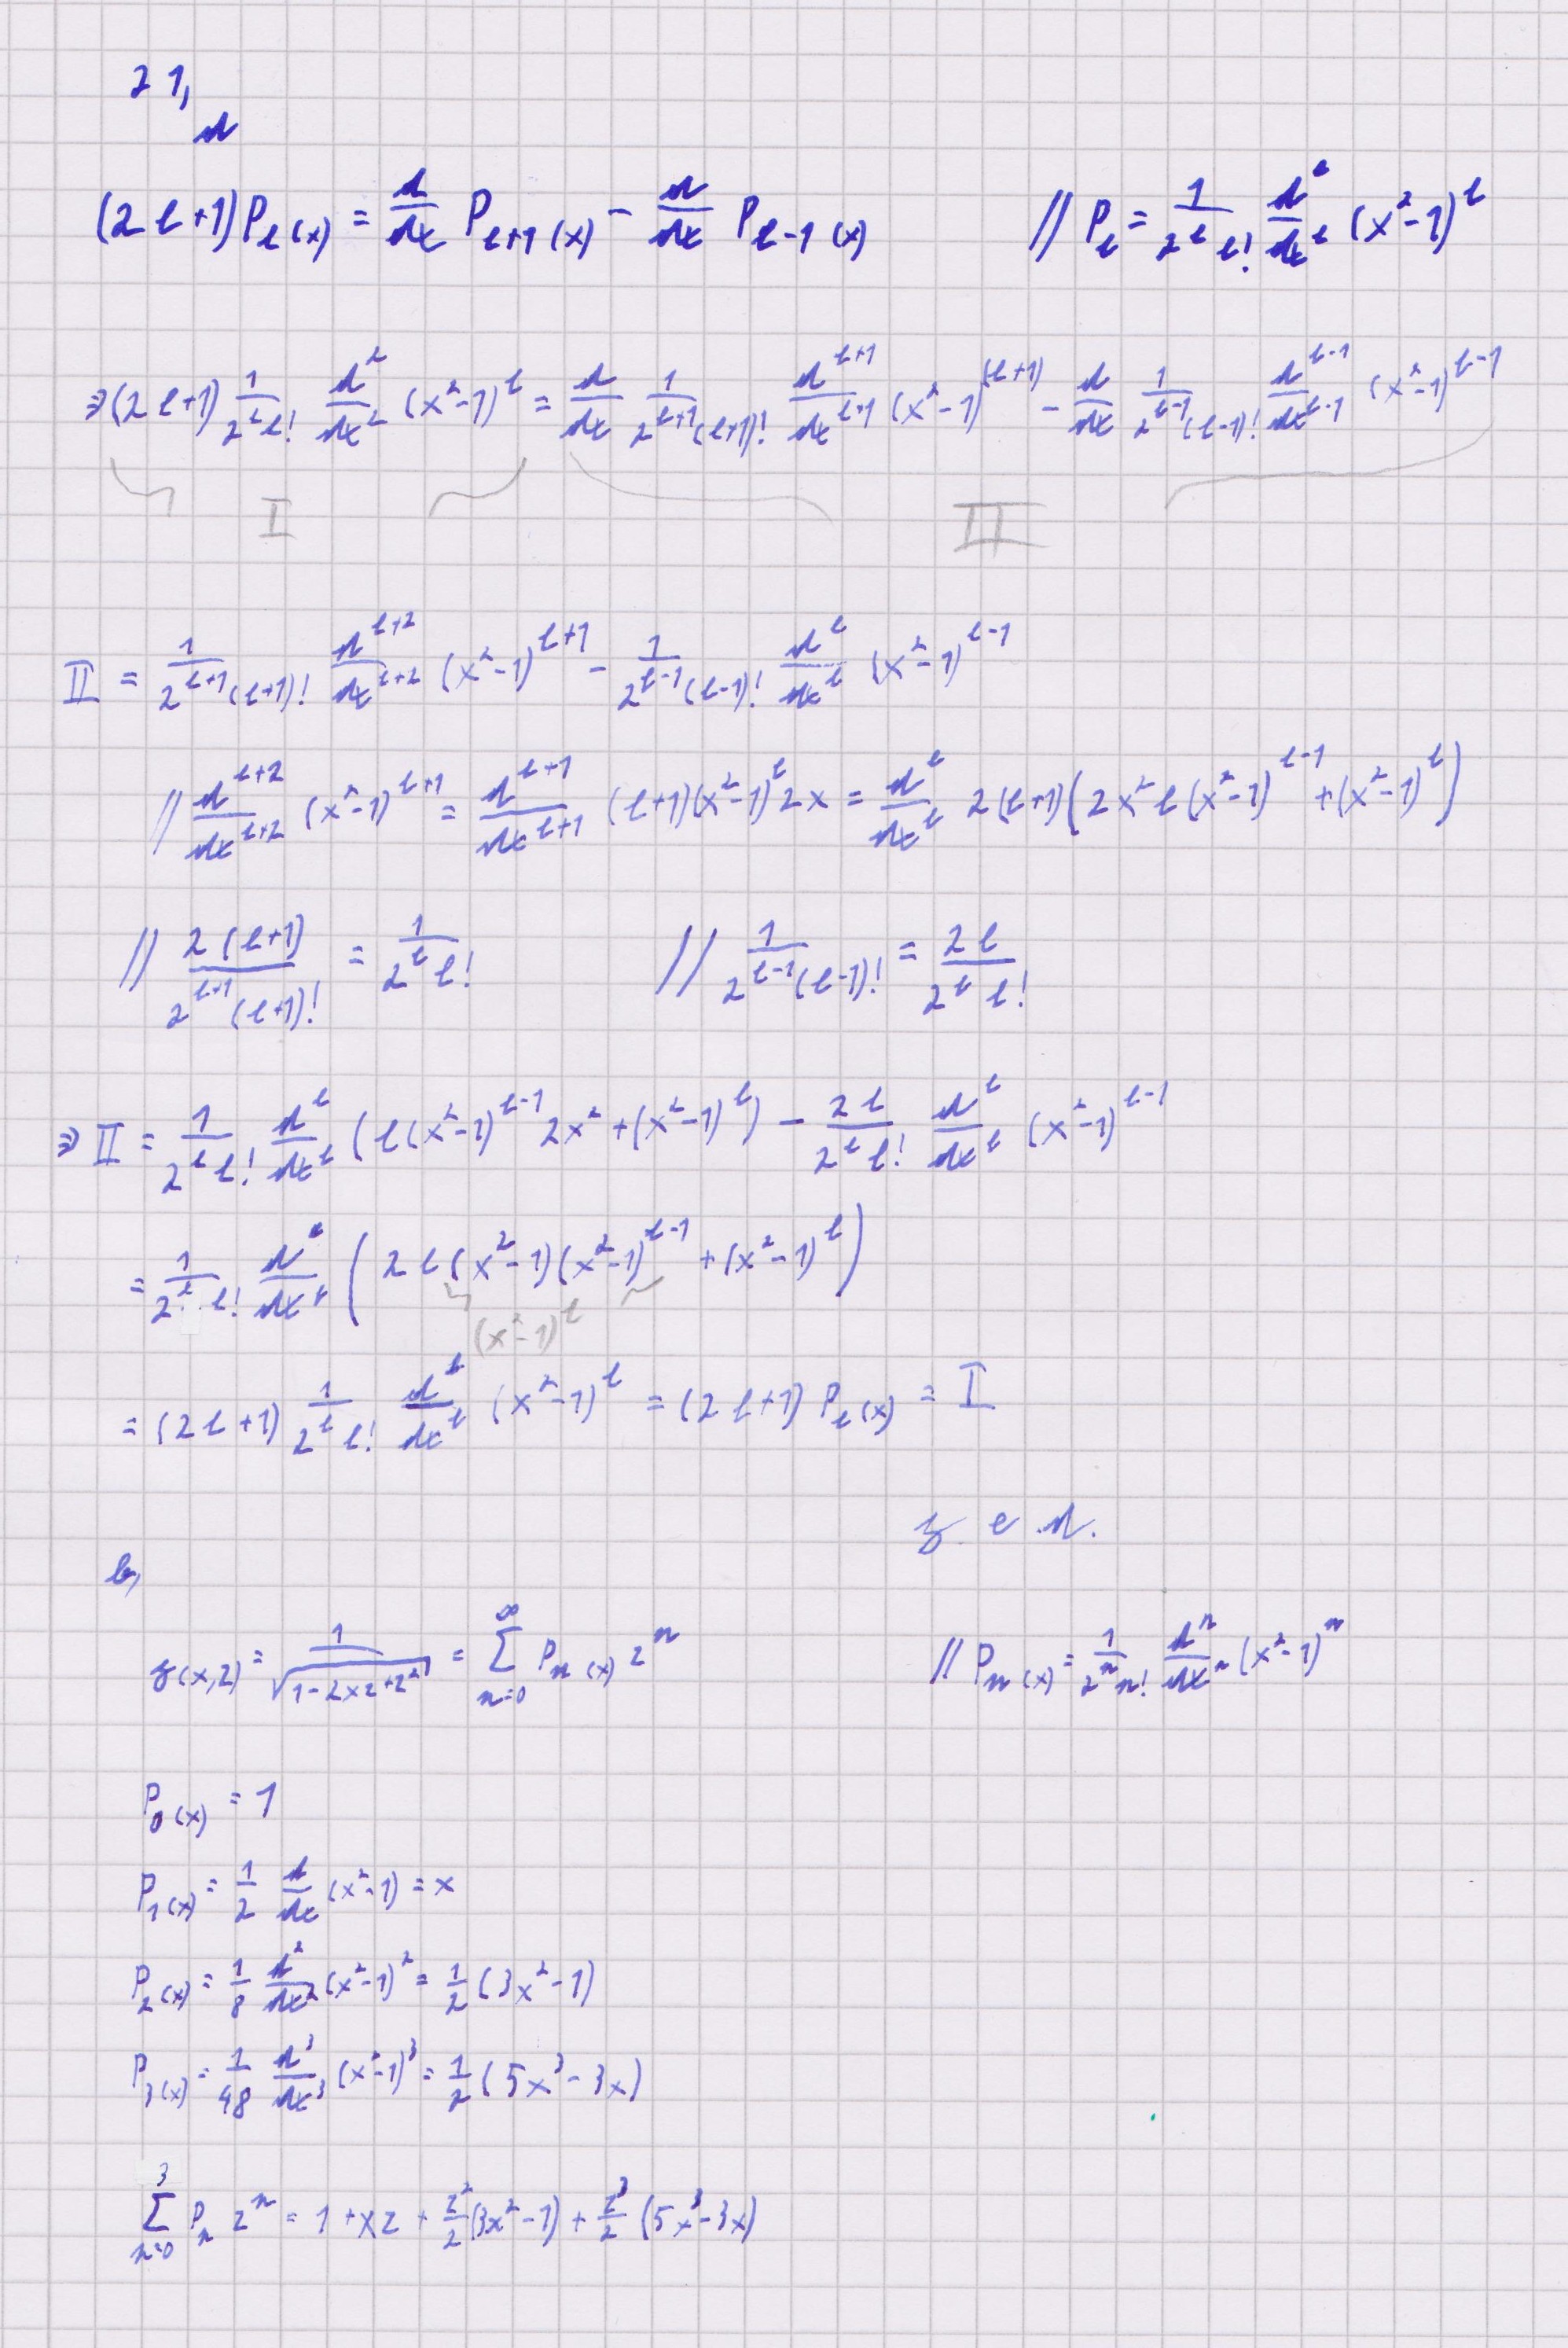 21,
a
(2l+1)P_l(x) = d/dx P_{l+1}(x) - d/dx P_{l-1}(x) // P_l = 1/(2^l l!) d^l/dx^l (x²-1)^l
⇒ (2l+1) 1/(2^l l!) d^l/dx^l (x²-1)^l = d/dx 1/(2^{l+1}(l+1)!) d^{l+1}/dx^{l+1} (x²-1)^{(l+1)} - d/dx 1/(2^{l-1}(l-1)!) d^{l-1}/dx^{l-1} (x²-1)^{l-1}
I II
II = 1/(2^{l+1}(l+1)!) d^{l+2}/dx^{l+2} (x²-1)^{l+1} - 1/(2^{l-1}(l-1)!) d^l/dx^l (x²-1)^{l-1}
// d^{l+2}/dx^{l+2} (x²-1)^{l+1} = d^{l+1}/dx^{l+1} (l+1)(x²-1)^l 2x = d^l/dx^l 2(l+1)(2x² l(x²-1)^{l-1} + (x²-1)^l)
// 2(l+1)/(2^{l+1}(l+1)!) = 1/(2^l l!) // 1/(2^{l-1}(l-1)!) = 2l/(2^l l!)
⇒ II = 1/(2^l l!) d^l/dx^l (l(x²-1)^{l-1} 2x² + (x²-1)^l) - 2l/(2^l l!) d^l/dx^l (x²-1)^{l-1}
= 1/(2^l l!) d^l/dx^l (2l(x²-1)(x²-1)^{l-1} + (x²-1)^l)
(x²-1)^l
= (2l+1) 1/(2^l l!) d^l/dx^l (x²-1)^l = (2l+1) P_l(x) = I
q e d.
b,
g(x,z) = 1/√(1-2xz+z²) = ∑_{n=0}^∞ P_n(x) z^n // P_n(x) = 1/(2^n n!) d^n/dx^n (x²-1)^n
P_0(x) = 1
P_1(x) = 1/2 d/dx (x²-1) = x
P_2(x) = 1/8 d²/dx² (x²-1)² = 1/2 (3x²-1)
P_3(x) = 1/48 d³/dx³ (x²-1)³ = 1/2 (5x³-3x)
∑_{n=0}^3 P_n z^n = 1 + xz + z²/2 (3x²-1) + z³/2 (5x³-3x)